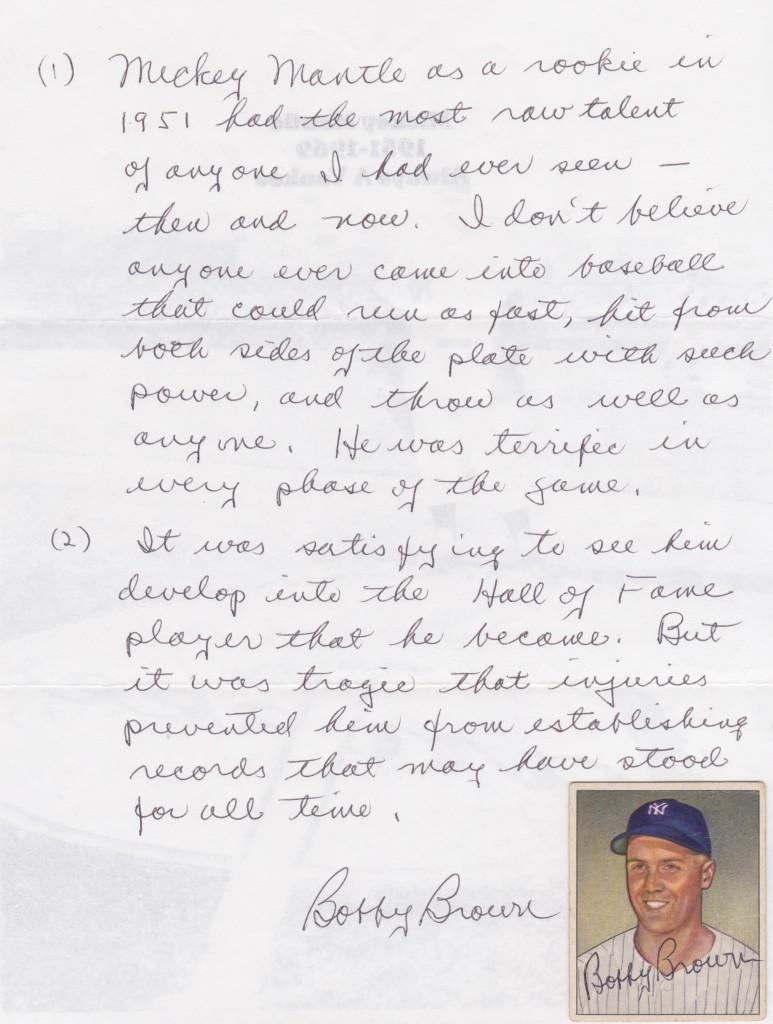 (1) Mickey Mantle as a rookie in
1951 had the most raw talent
of anyone I had ever seen —
then and now. I don't believe
anyone ever came into baseball
that could run as fast, hit from
both sides of the plate with such
power, and throw as well as
anyone. He was terrific in
every phase of the game.
(2) It was satisfying to see him
develop into the Hall of Fame
player that he became. But
it was tragic that injuries
prevented him from establishing
records that may have stood
for all time.
Bobby Brown
NY
Bobby Brown